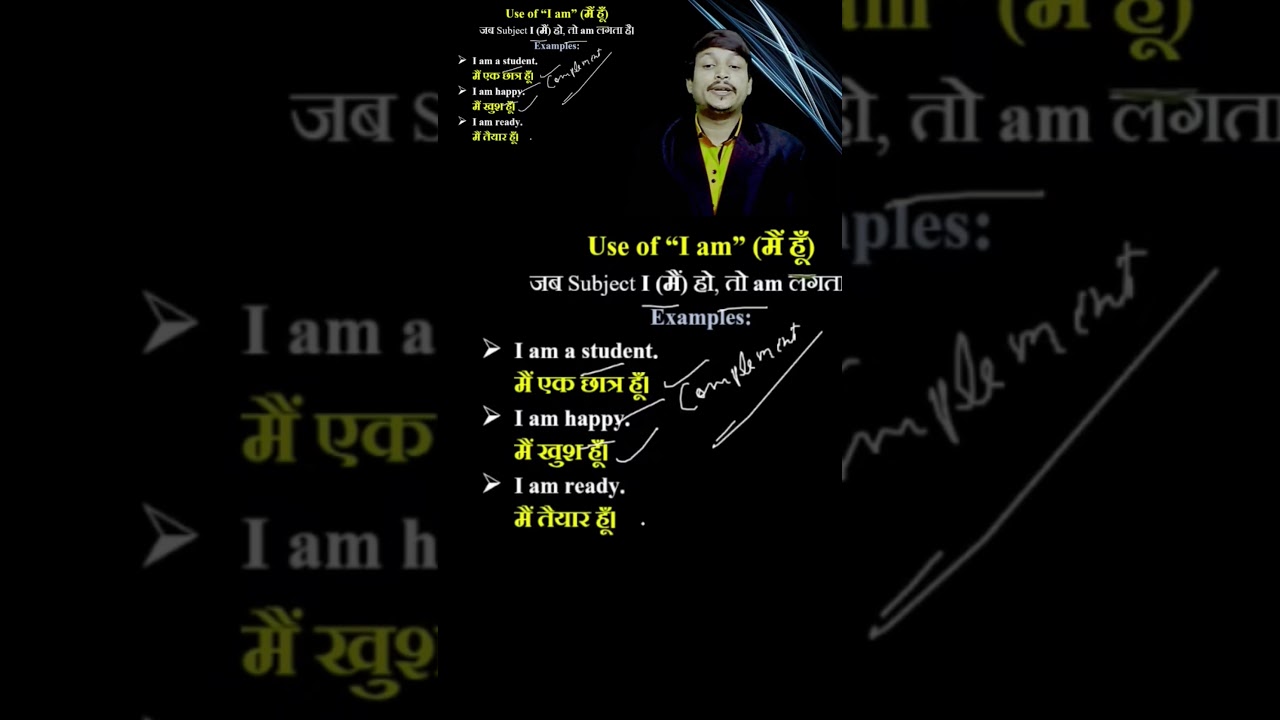 Use of “I am” (मैं हूँ)
जब Subject I (मैं) हो, तो am लगता है।
Examples:
➢ I am a student.
मैं एक छात्र हूँ।
➢ I am happy.
मैं खुश हूँ।
➢ I am ready.
मैं तैयार हूँ।
Complement
Use of “I am” (मैं हूँ)
जब Subject I (मैं) हो, तो am लगता
Examples:
➢ I am a student.
मैं एक छात्र हूँ।
➢ I am happy.
मैं खुश हूँ।
➢ I am ready.
मैं तैयार हूँ।
Complement
am (मैं हूँ)
जब S
हो, तो am लगता
ples:
➢ I am a
मैं एक
➢ I am h
मैं खुश
mplement